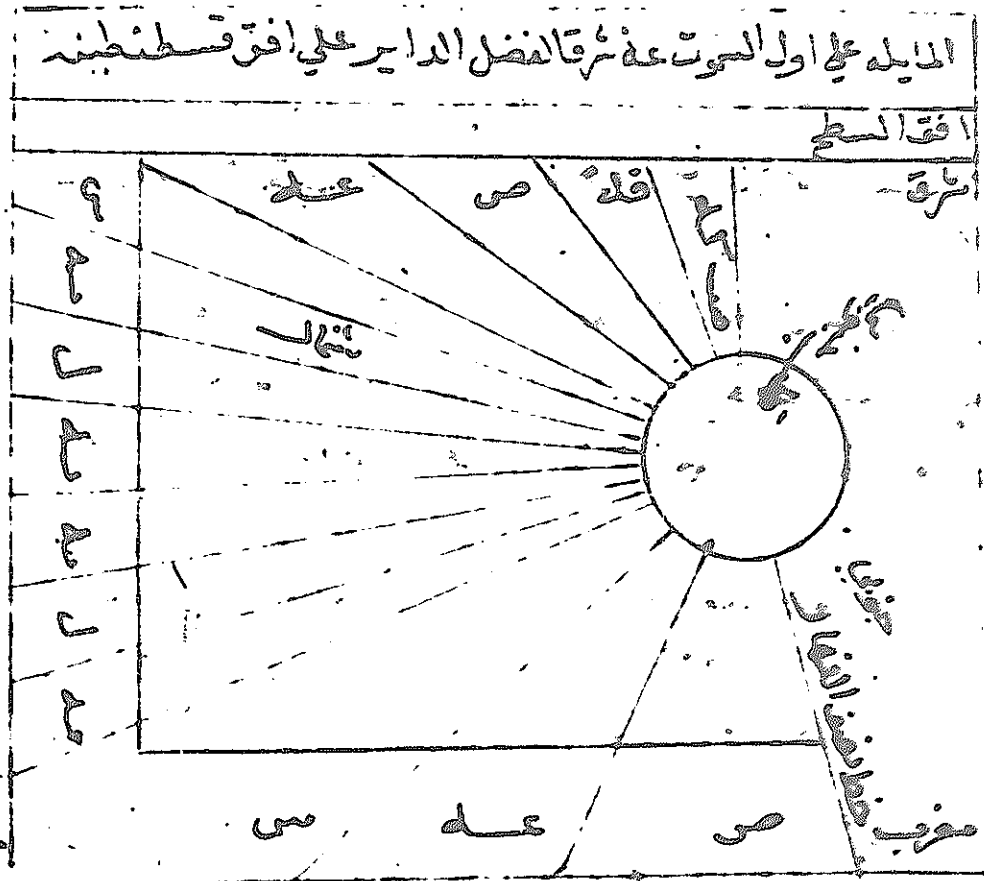 المايله علي اول السموت عة شرقا لفضل الداير علي افق قسطنطينيه
افق السطح
شرق
قك
ص
عه
س
مه
ل
يه
يه
ل
مه
شمال
جنوب
خط نصف النهار
مغرب
ص
عه
س